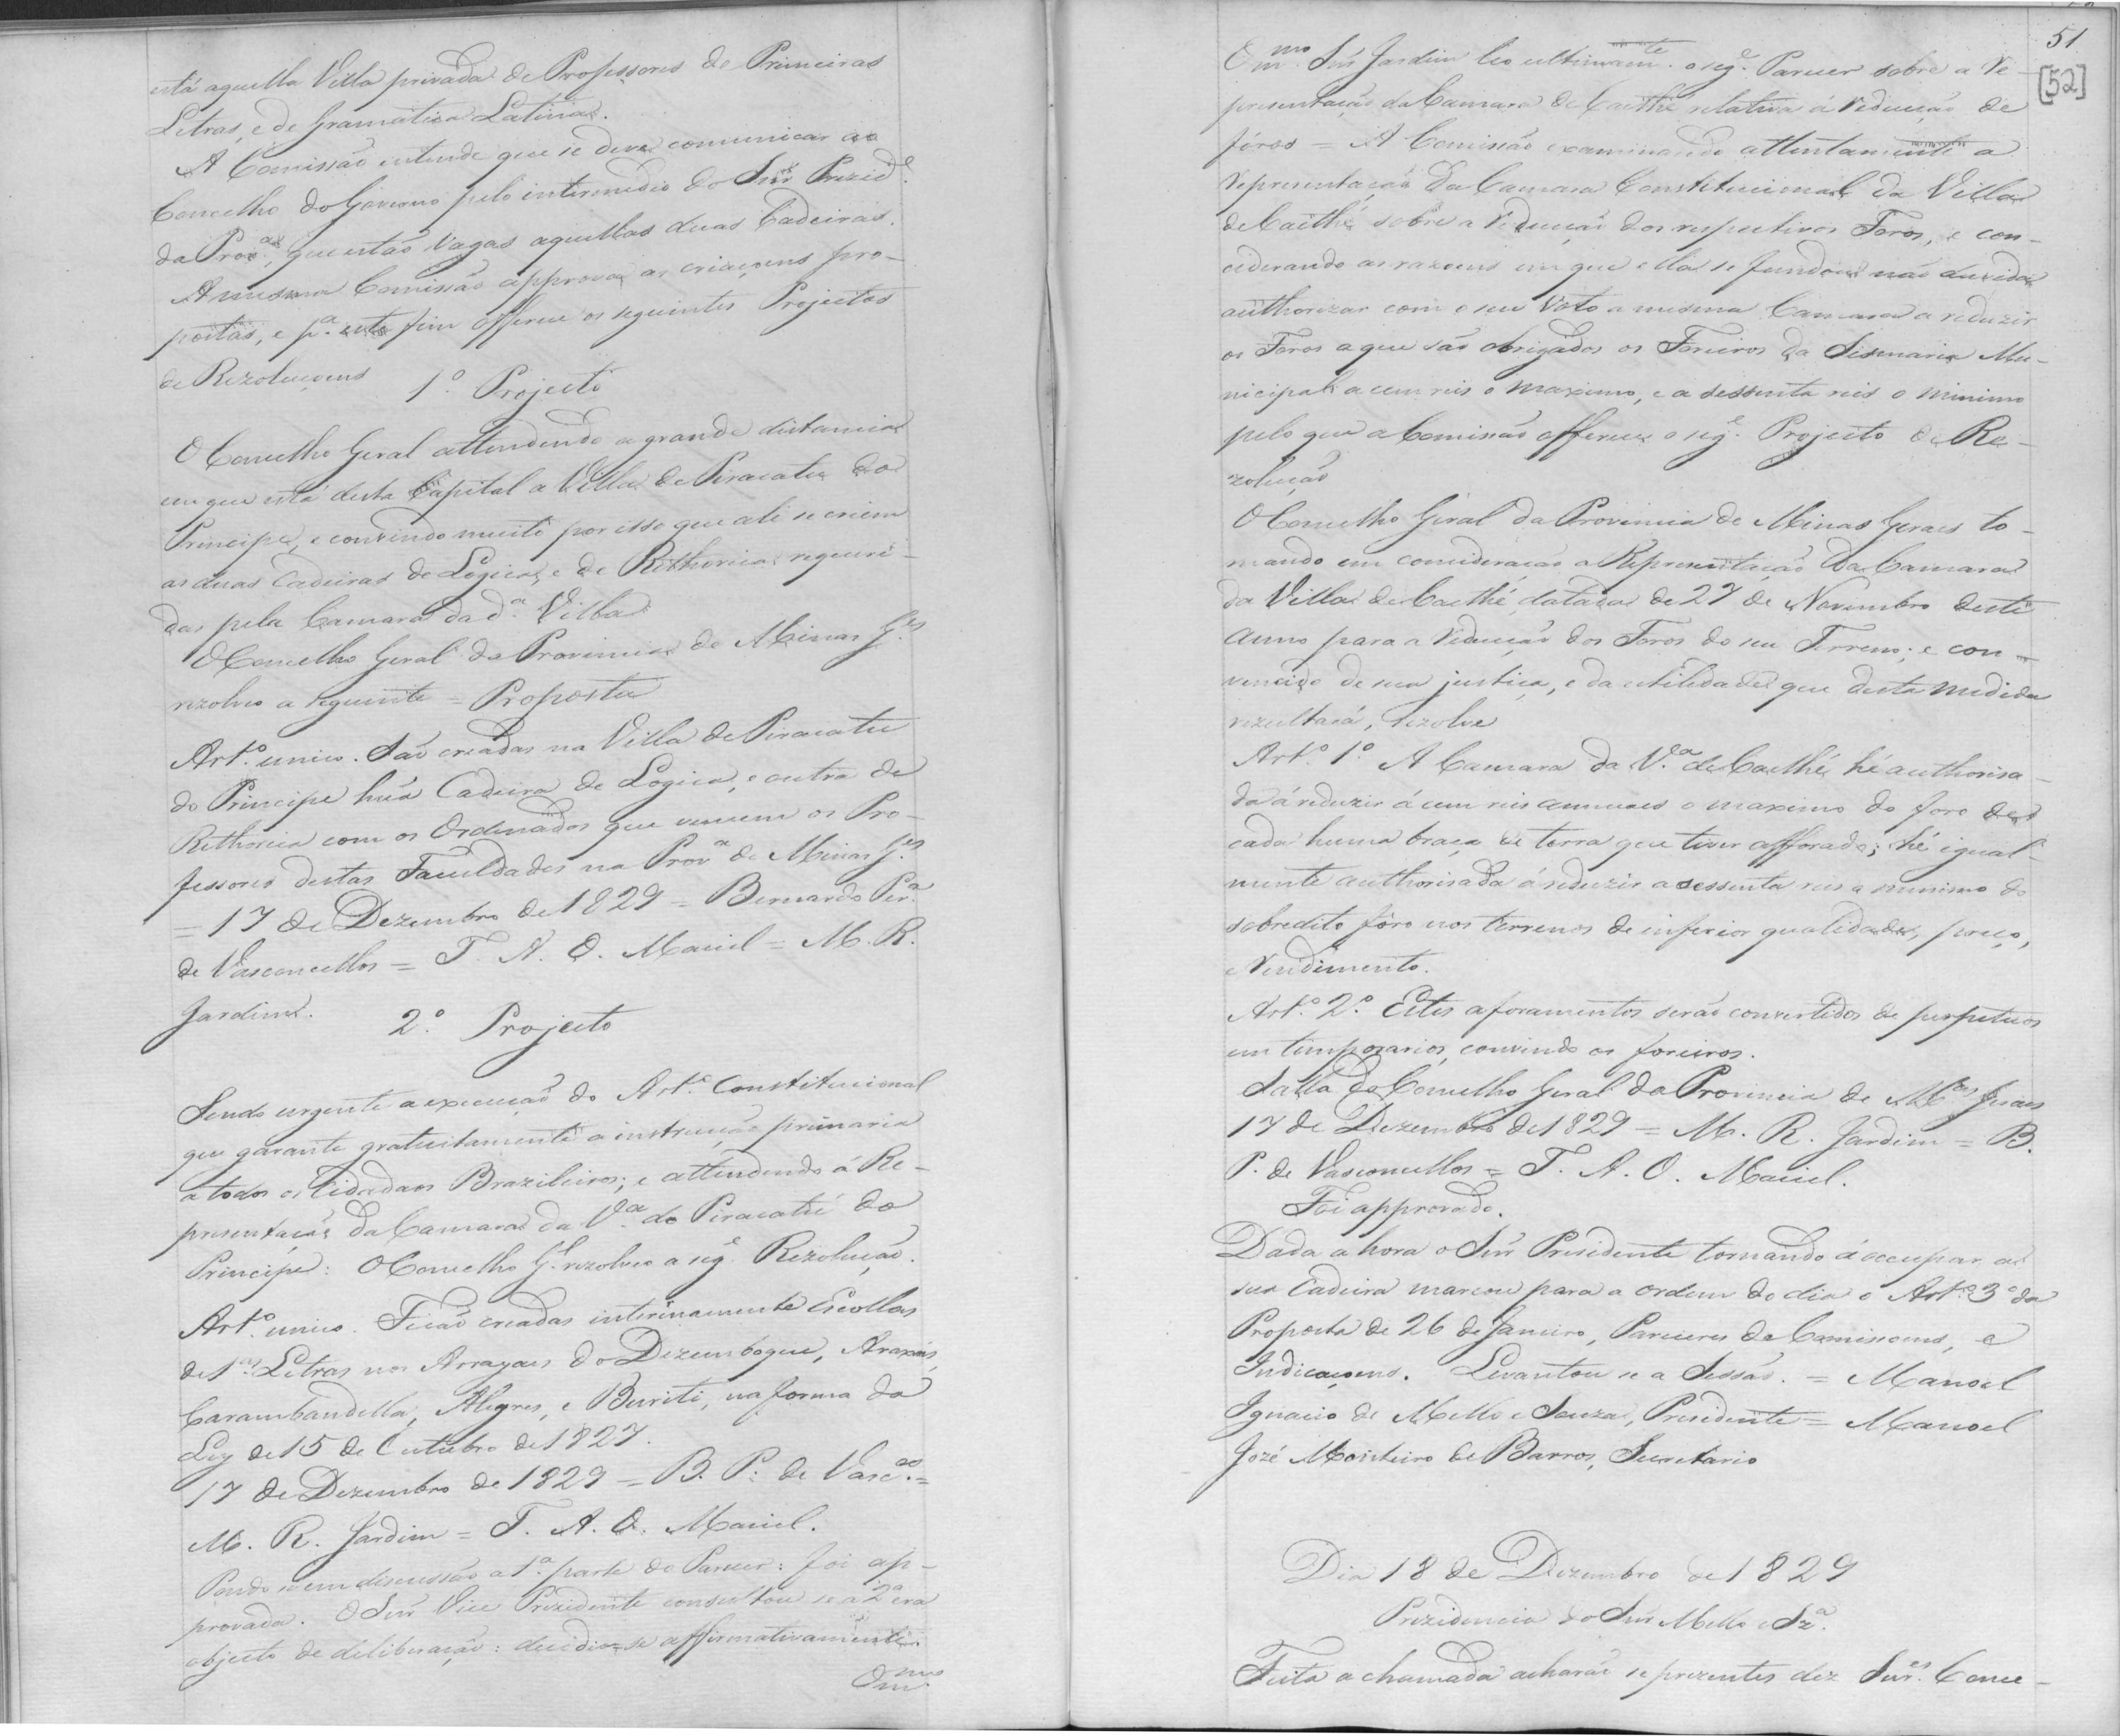 está aquella Villa privada de Professores de Primeiras
Letras, e de Gramatica Latina.
A Comissão entende que se deve comunicar ao
Concelho do Governo pelo intermedio do Snr Prezid.e
da Prov.a, que estão vagas aquellas duas Cadeiras.
A mesma Comissão approva as criaçoens pro-
postas, e p.a este fim offerece os seguintes Projectos
de Rezoluçoens
1.o Projecto
O Concelho Geral attendendo a grande distancia
em que está desta Capital a Villa de Piracatu do
Principe, e convindo muito por isso que ali se criem
as duas Cadeiras de Logica, e de Rethorica requeri-
das pela Camara da d.a Villa
O Concelho Geral da Provincia de Minas G.es
rezolveo a seguinte = Proposta
Art.o unico. São creadas na Villa de Piracatu
do Principe hũa Cadeira de Logica, e outra de
Rethorica com os Ordenados que vencem os Pro-
fessores destas Faculdades na Prov.a de Minas G.es
= 17 de Dezembro de 1829 = Bernardo Per.a
de Vasconcellos = T. A. O. Maciel = M. R.
Jardim.
2.o Projecto
Sendo urgente a execução do Art.o Constitucional
que garante gratuitamente a instrucção primaria
a todos os Cidadaos Brazileiros; e attendendo á Re-
presentação da Camara da V.a do Piracatú do
Principe: O Concelho G.l rezolveo a seg.e Rezolução.
Art.o unico. Ficão creadas interinamente Escollas
de 1.as Letras nos Arrayaes do Dezemboque, Araxás,
Carambandella, Alegres, e Buriti, na forma da
Ley de 15 de Outubro de 1827.
17 de Dezembro de 1829 = B. P. de Vasc.os =
M. R. Jardim = T. A. O. Maciel.
Pondo se em discussão a 1.a parte do Parecer: foi ap-
provada. O Snr Vice Prezidente consultou se a 2.a era
objecto de deliberação: decidio-se affirmativamente.
O m.mo
51
[52]
O m.mo Snr Jardim leo ultimam.te o seg.e Parecer sobre a re-
presentação da Camara de Caethé relativa á reducção de
fóros = A Comissão examinando attentamente a
representação da Camara Constitucional da Villa
de Caethé sobre a reducção dos respectivos Foros, e con-
ciderando as razoens em que ella se funda não duvida
authorizar com o seu voto a mesma Camara a reduzir
os Foros a que são obrigados os Foreiros da Sismaria Mu-
nicipal a cem reis o maximo, e a sessenta reis o minimo
pelo que a Comissão offerece o seg.e Projecto de Re-
zolução
O Concelho Geral da Provincia de Minas Geraes to-
mando em consideração a Representação da Camara
da Villa de Caethé datada de 27 de Novembro deste
anno para a reducção dos Foros do seu Terreno; e con-
vencido de sua justiça, e da utilidade que desta medida
rezultará, rezolve
Art.o 1.o A Camara da V.a de Caethé hé authorisa-
da á reduzir á cem reis annuaes o maximo do foro de
cada huma braça de terra que tiver afforado; hé igual-
mente authorisada á reduzir a sessenta reis o minimo do
sobredito fôro nos terrenos de inferior qualidade, preço,
e rendimento.
Art.o 2.o Estes aforamentos serão convertidos de perpetuos
em temporarios, convindo os foreiros.
Salla do Concelho Geral da Provincia de M.as Geraes
17 de Dezembro de 1829 = M. R. Jardim = B.
P. de Vasconcellos = T. A. O. Maciel.
Foi approvado.
Dada a hora o Snr Presidente tornando á occupar a
sua Cadeira marcou para a ordem do dia o Art.o 3.o da
Proposta de 26 de Janeiro, Pareceres de Comissoens, e
Indicaçoens. Levantou se a Sessão. = Manoel
Ignacio de Mello e Souza, Presidente = Manoel
Jozé Monteiro de Barros, Secretario
Dia 18 de Dezembro de 1829
Prezidencia do Snr Mello e Sz.a
Feita a chamada acharão se prezentes dez Snr.es Conce-